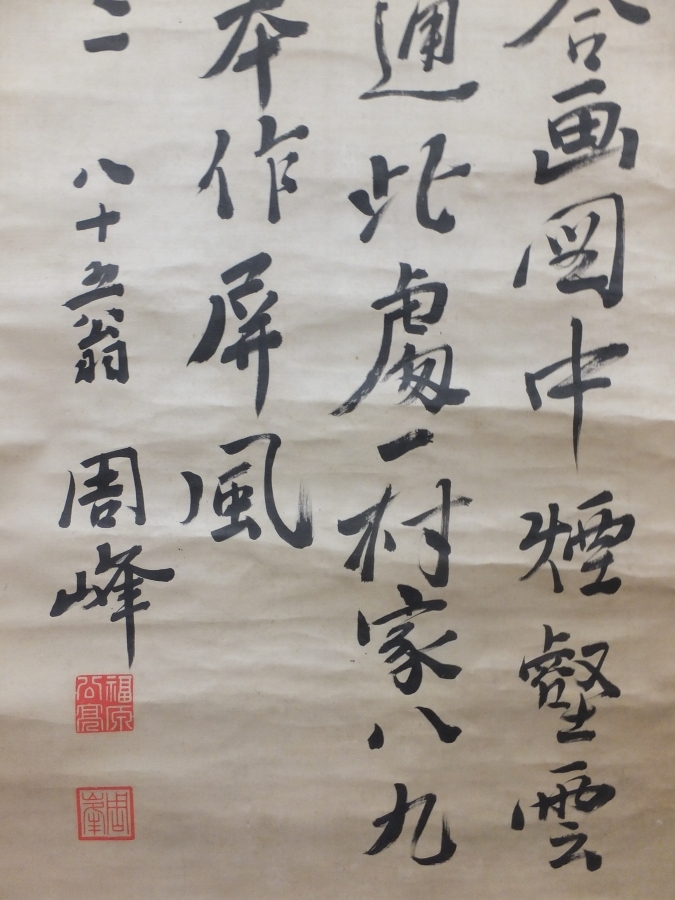 合画図中煙壑雲
通此處一村家八九
本作屏風
八十五翁 周峰
福原
公亮
周
峯